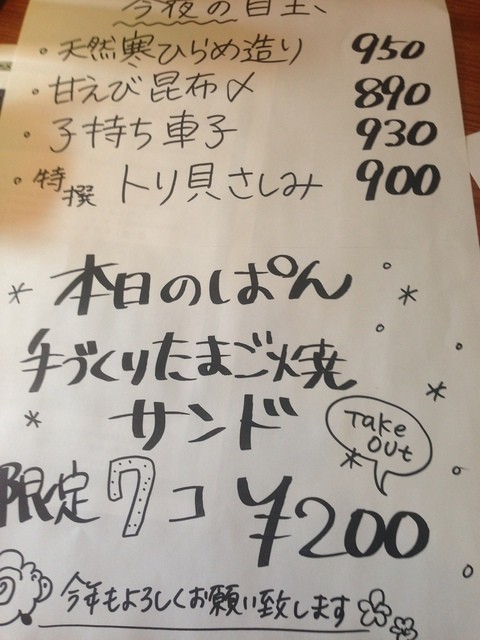 今夜の目玉、
・天然寒ひらめ造り 950
・甘えび昆布〆 890
・子持ち車子 930
・特撰 トリ貝さしみ 900
本日のぱん
手づくりたまご焼
サンド
Take out
限定7コ ¥200
今年もよろしくお願い致します